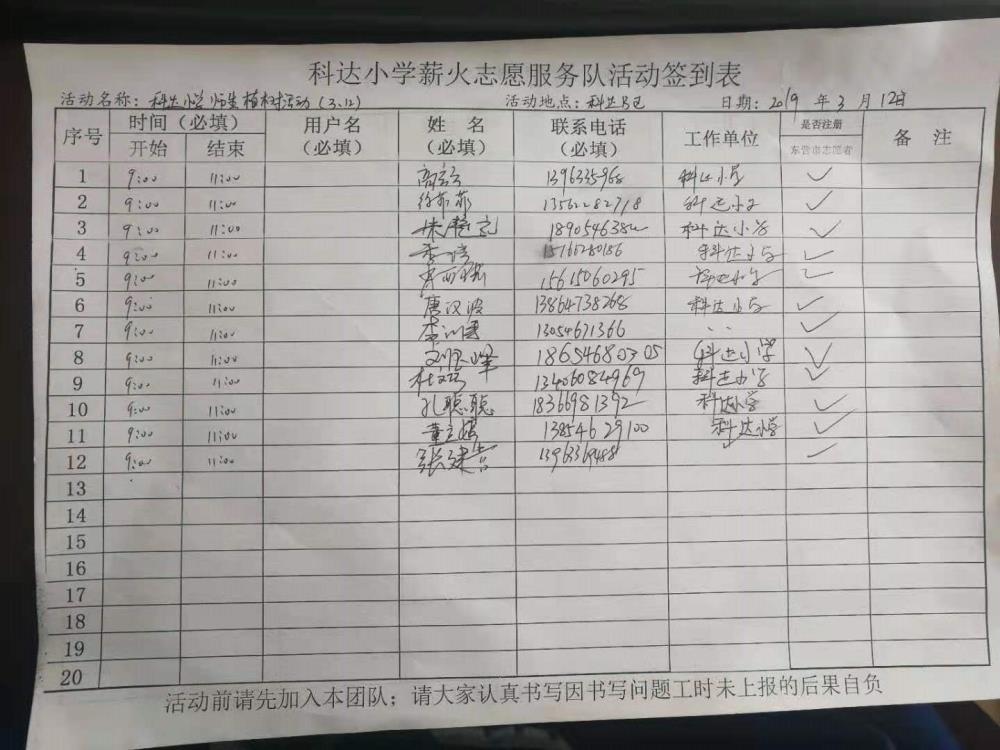 科达小学薪火志愿服务队活动签到表
活动名称：科达小学师生植树活动（3.12） 活动地点：科达 日期：2019 年 3 月 12日
序号 时间（必填） 用户名（必填） 姓 名（必填） 联系电话（必填） 工作单位 是否注册东营市志愿者 备 注
开始 结束
1 9:00 11:00 1396335968 科达小学 ✓
2 9:00 11:00 徐菲菲 13562282718 科达小学 ✓
3 9:00 11:00 朱 科达小学 ✓
4 9:00 11:00 李 15766280186 科达小学 ✓
5 9:00 11:00 15615060295 科达小学 ✓
6 9:00 11:00 唐汉波 13864738268 科达小学 ✓
7 9:00 11:00 李 13054671366 〃 ✓
8 9:00 11:00 刘 峰 18654680705 科达小学 ✓
9 9:00 11:00 杜 13406084969 科达小学 ✓
10 9:00 11:00 孔聪聪 18366981392 科达小学 ✓
11 9:00 11:00 董 13854629100 科达小学 ✓
12 9:00 11:00 张建吉 ✓
13
14
15
16
17
18
19
20
活动前请先加入本团队；请大家认真书写因书写问题工时未上报的后果自负